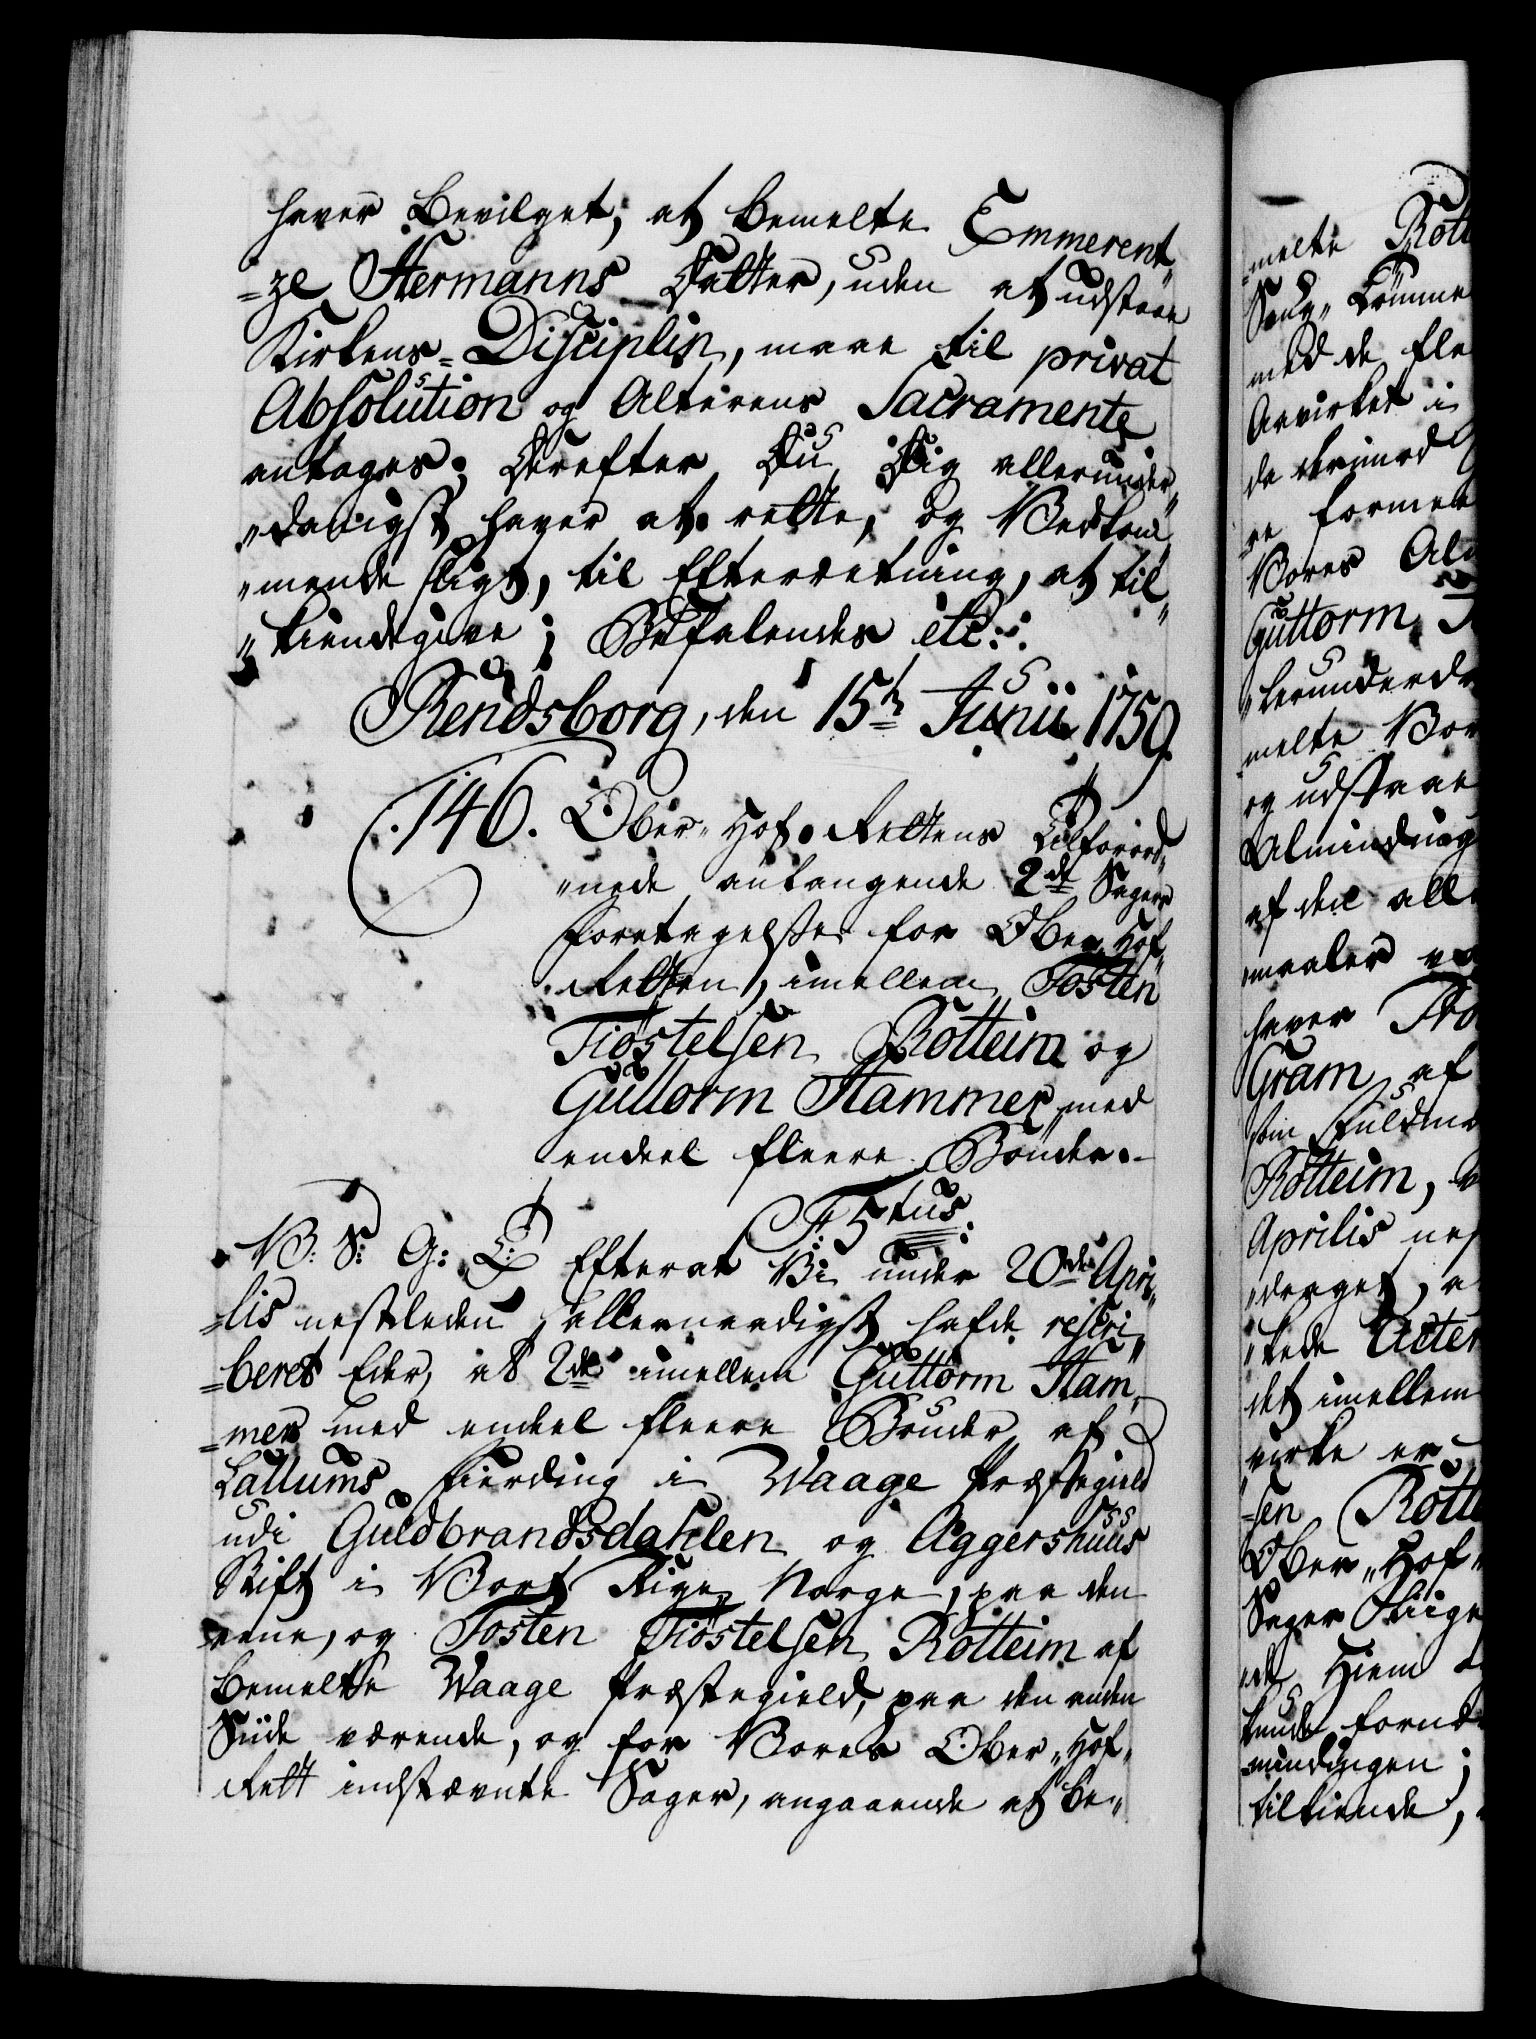 haver Bevilget, at bemelte Emmerent„
=ze Hermanns Datter, uden at udstaae
Kirkens=Disciplin, maae til privat
Absolution og Alterens Sacramente
antages; Derefter Du Dig allerunder„
„danigst haver at rette, og Vedkom„
„mende sligt, til Efterretning, at til„
„kiendegive; Befalendes etc:
Rendsborg, den 15de Junii 1759.
146. Ober„Hof-Rettens Tilforord„
„nede anlangende 2de Sagers
foretagelse for Ober„Hof„
Retten, imellem Tosten
Tiøstelsen Rotteim og
Guttorm Hammer, med
endeel fleere Bønder.
F: 5tus.
V: S: G: T: Efterat Vi under 20de Apri„
=lis nestleden allernaadigst hafde rescri„
=beret Eder, at 2de imellem Guttorm Ham„
=mer med endeel fleere Bønder af
Lallums Fierding i Waage Præstegield
udi Guldbrandsdahlen og Aggershuus
Stift i Vort Rige Norge, paa den
eene, og Tosten Tiøstelsen Rotteim af
bemelte Waage Præstegield, paa den anden
Siide værende, og for Vores Ober„Hof„
Rett indstævnte Sager, angaaende at be„
=melte Rott
med de fle
Arvirket i
de derimod
Vores Al
Guttorm
melte Vor
og udstaae
Alminding
af den alle
haver
Gram af
som Fuldm
Rotteim,
Aprilis nes
Acter
det imellem
virke er
=sen Rotte
Ober„Hof„
Sager
Hiem
mindingen;
tilkiende,